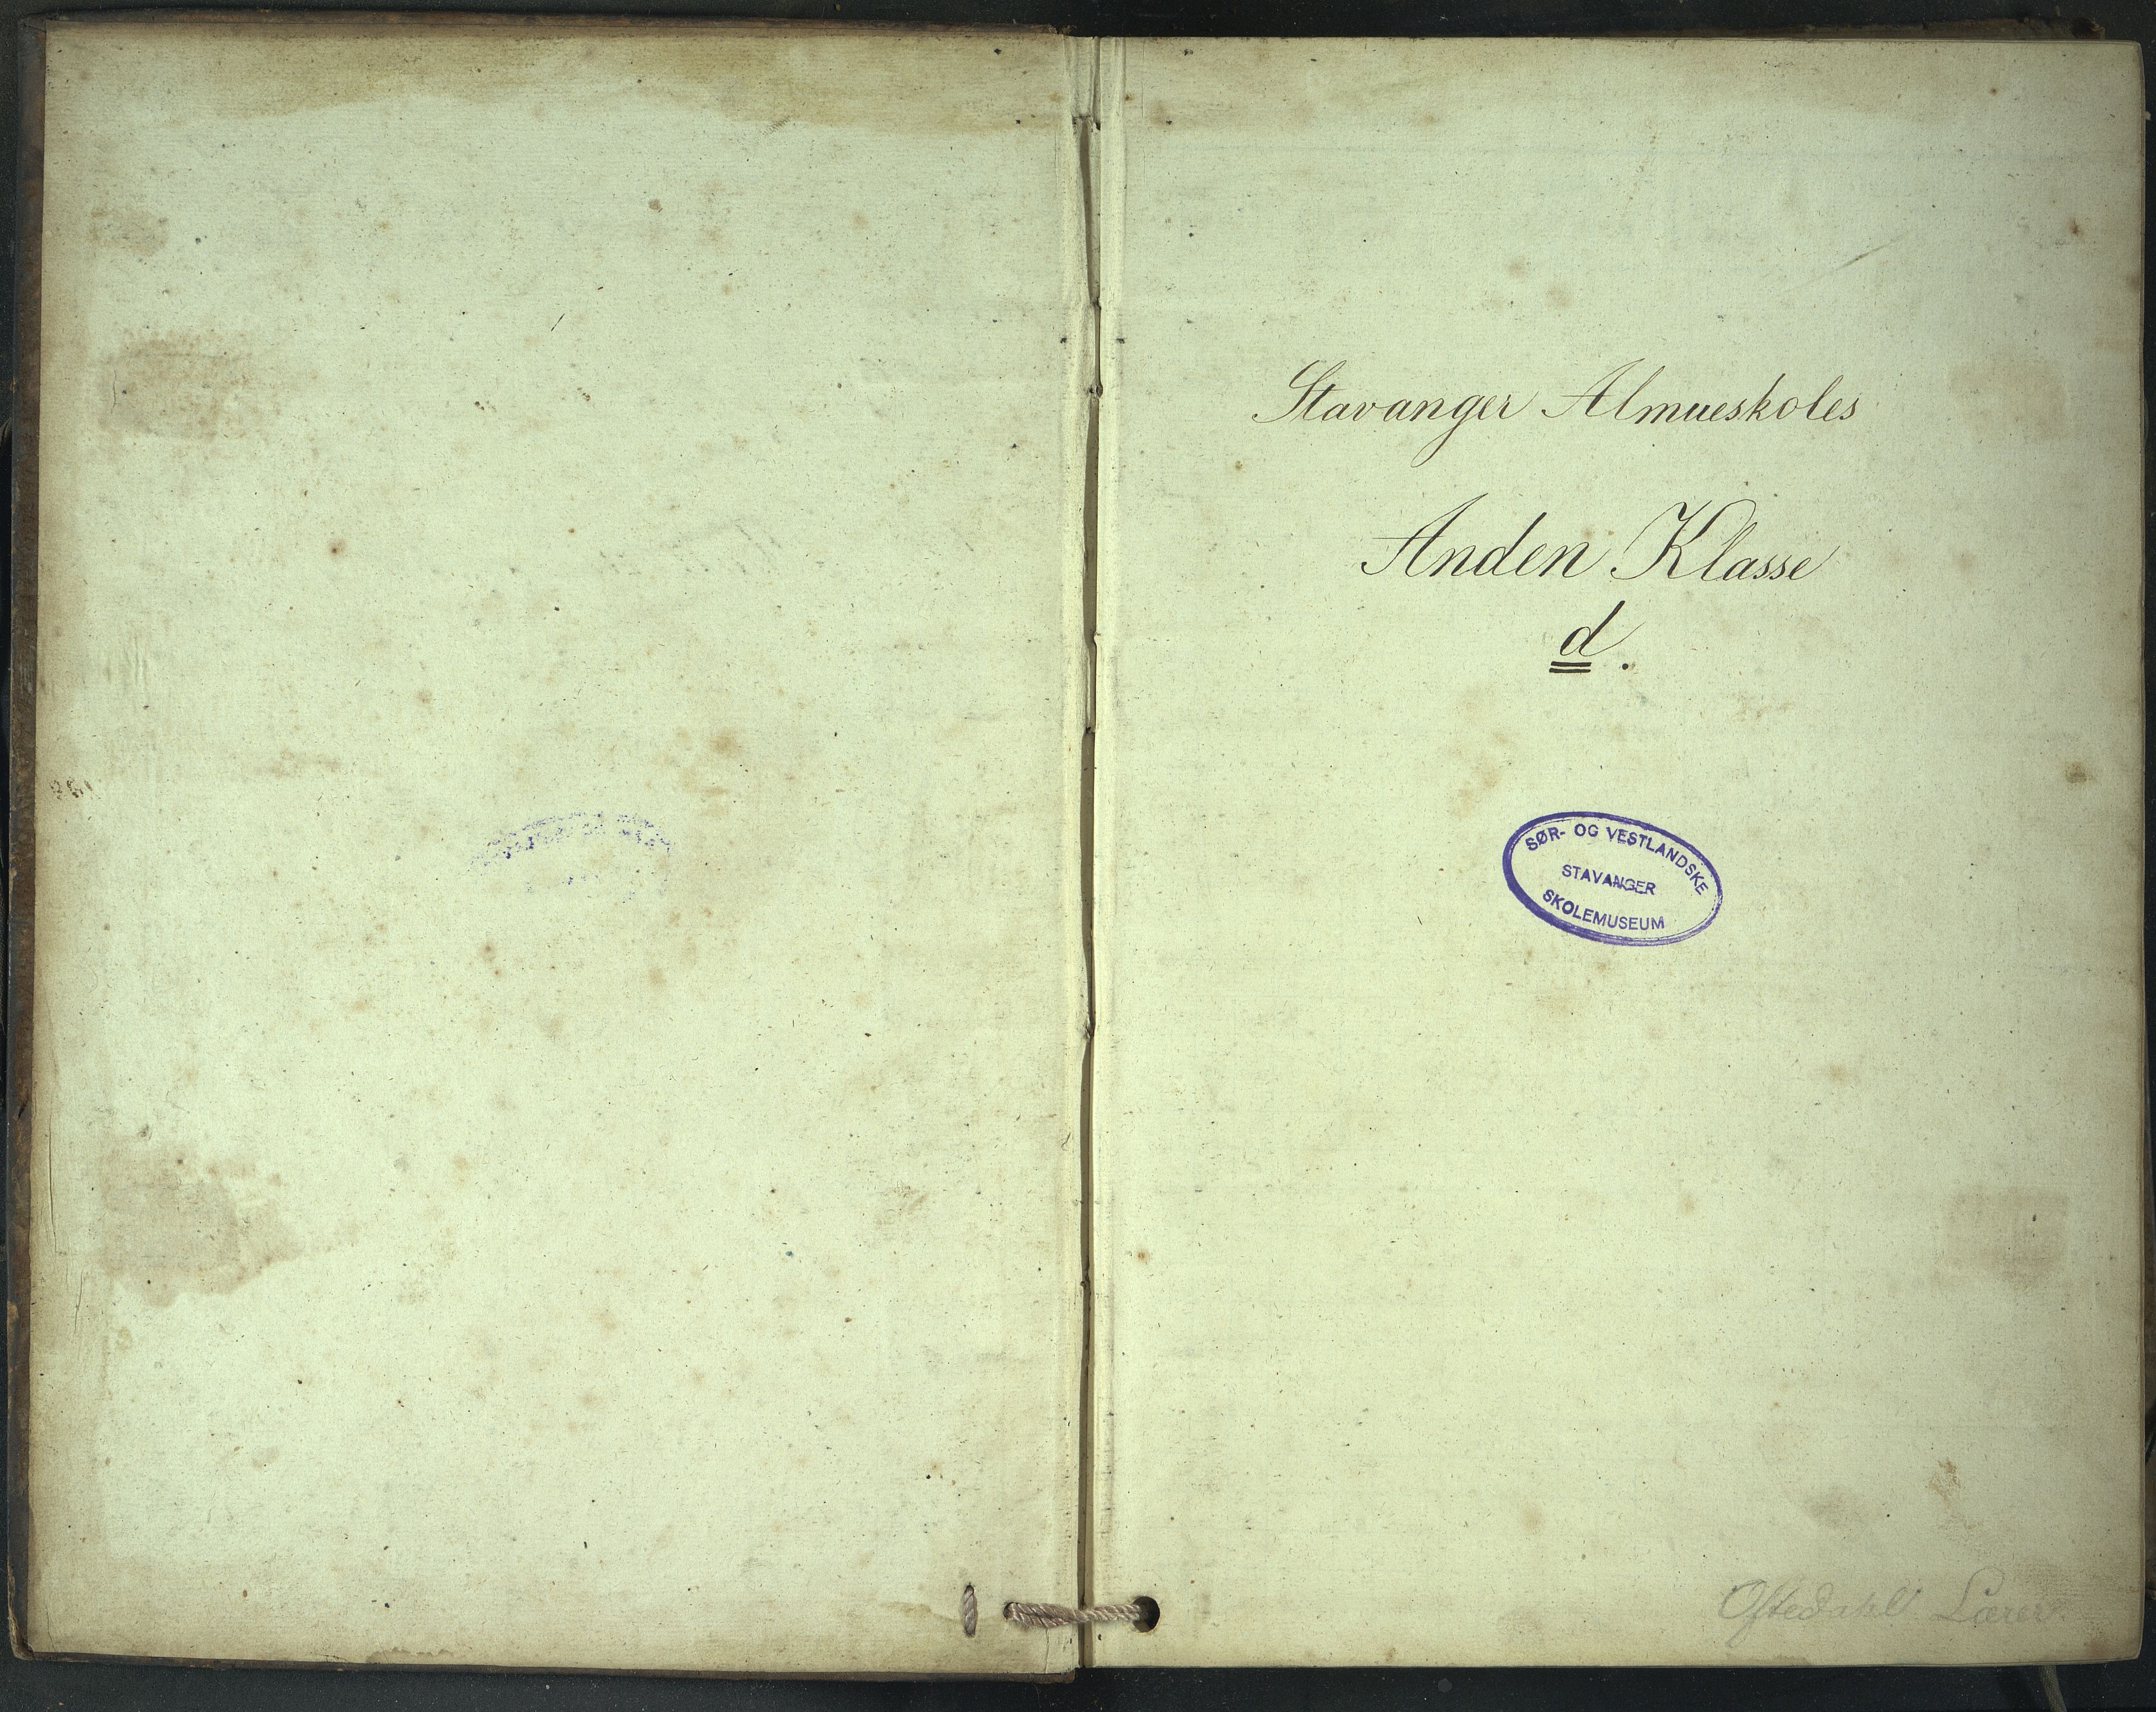 Stavanger Almueskoles
Anden Klasse
d.
SØR- OG VESTLANDSKE
STAVANGER
SKOLEMUSEUM
Oftedahl Lærer